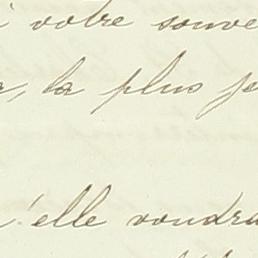 votre souve
la plus je
'elle voudra